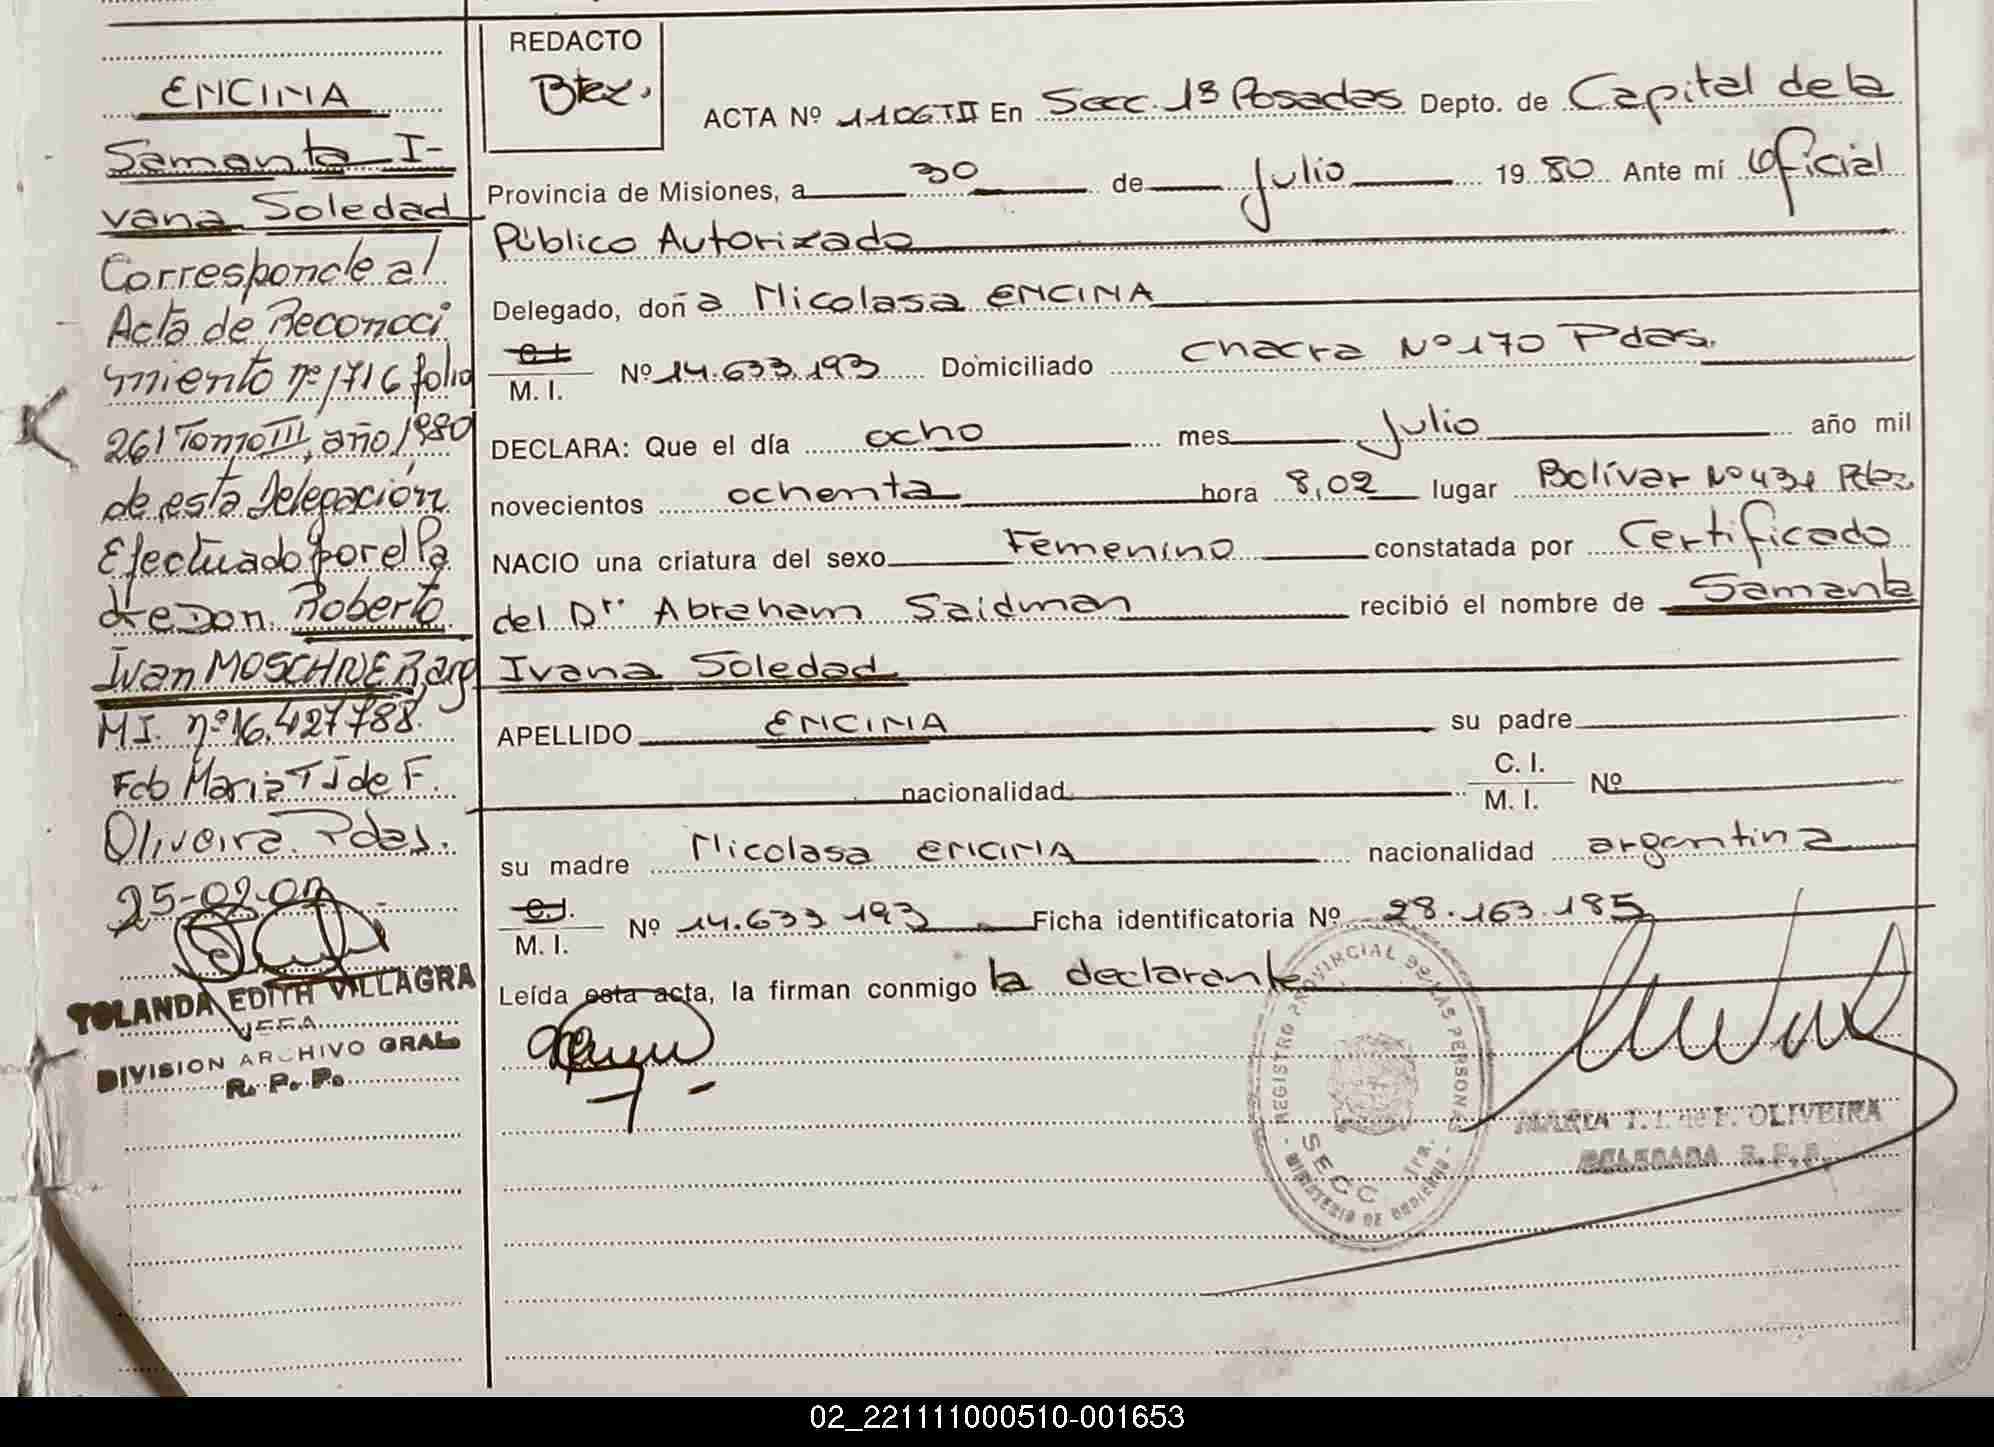 ENCINA
Samanta I-
vana Soledad
Corresponde al
Acta de Reconoci
miento nº 1716 folio
261 Tomo III, año 1980
de esta Delegación
Efectuado por el Pa
dre Don Roberto
Ivan MOSCHNER, arg
MI. nº 16.427788.
Fdo Maria T J de F.
Oliveira. Pdas.
25-02-02
YOLANDA EDITH VILLAGRA
JEFA
DIVISION ARCHIVO GRAL
R. P. P.
REDACTO
ACTA Nº 1106TII En Secc. 1ª Posadas Depto. de Capital de la
Provincia de Misiones, a 30 de Julio 1980 Ante mí Oficial
Público Autorizado
Delegado, doña Nicolasa ENCINA
M. I. Nº 14.633.193 Domiciliado Chacra Nº 170 Pdas.
DECLARA: Que el día ocho mes Julio año mil
novecientos ochenta hora 8,02 lugar Bolívar Nº 431 Pdas
NACIO una criatura del sexo Femenino constatada por Certificado
del Dr. Abraham Saidman recibió el nombre de Samanta
Ivana Soledad
APELLIDO ENCINA su padre
nacionalidad C. I. M. I. Nº
su madre Nicolasa ENCINA nacionalidad argentina
C.I. M. I. Nº 14.633 193 Ficha identificatoria Nº 28.163.185
Leída esta acta, la firman conmigo la declarante
REGISTRO PROVINCIAL DE LAS PERSONAS
SECC 1ra.
MINISTERIO DE GOBIERNO
MARIA T. J. de F. OLIVEIRA
DELEGADA R.P.P.
02_221111000510-001653